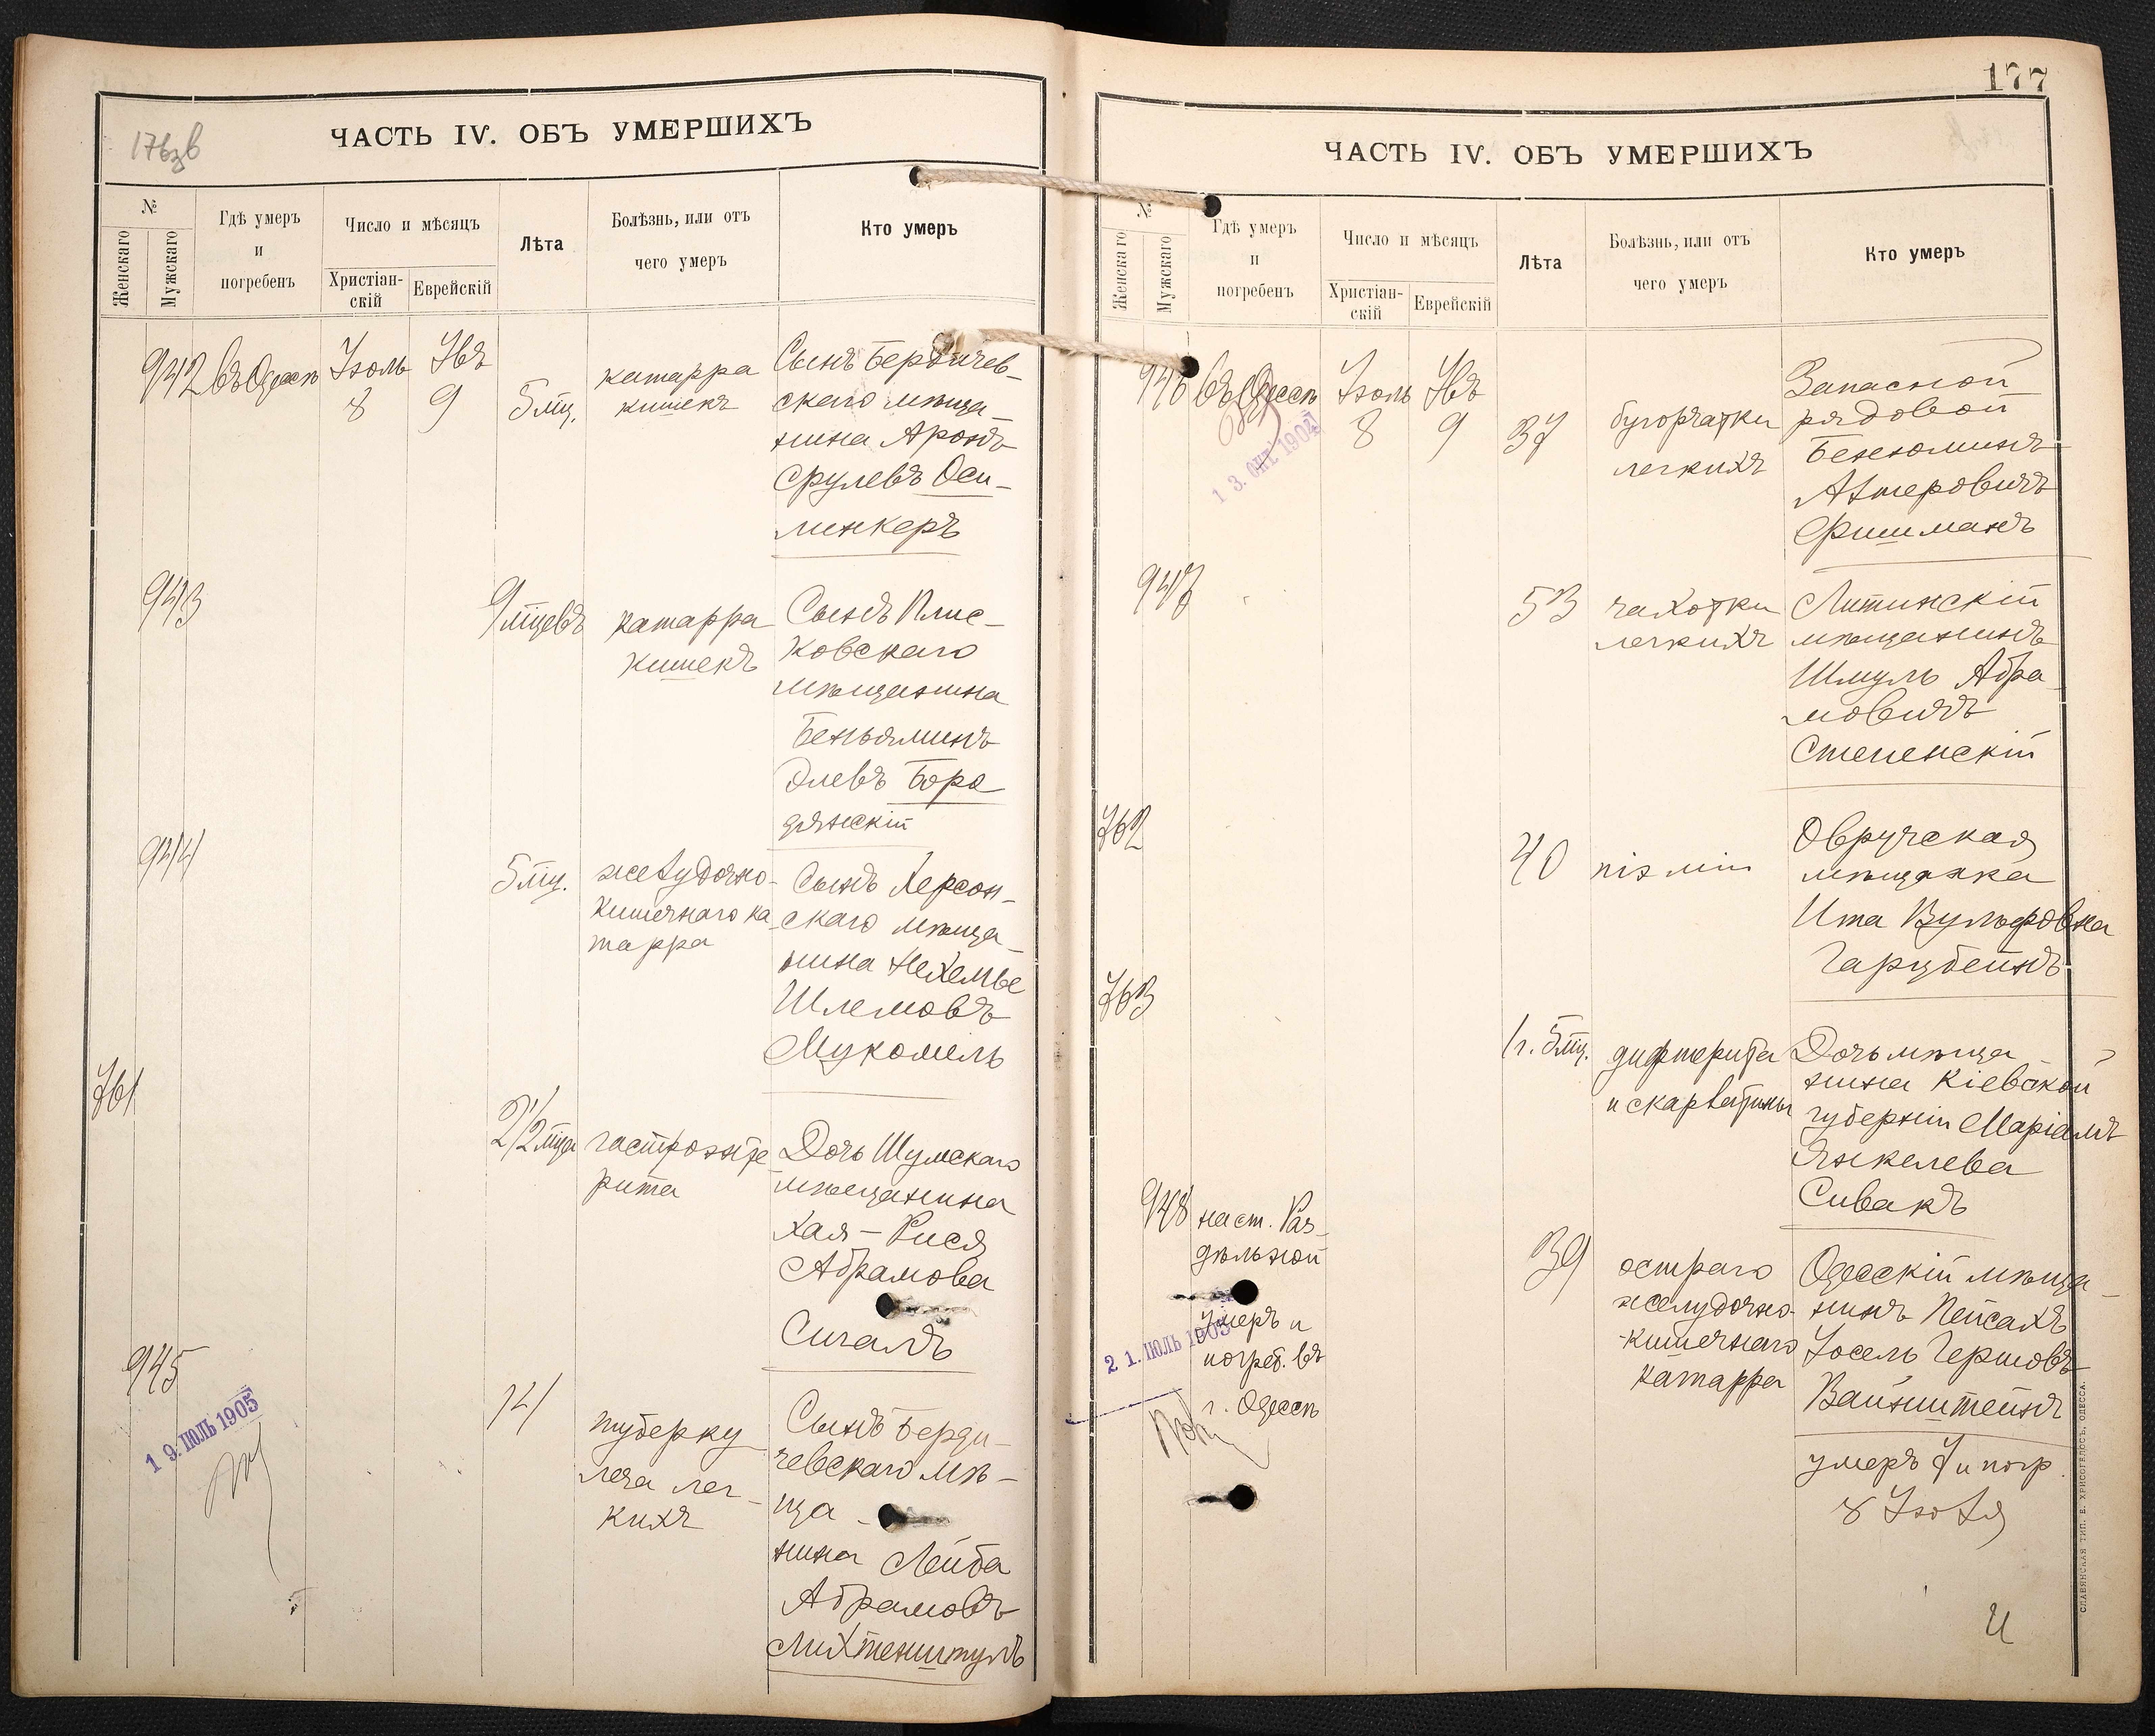 ЧАСТЬ IV. ОБЪ УМЕРШИХЪ
№
Женскаго
Мужскаго
Гдѣ умеръ
и
погребенъ
Число и мѣсяцъ
Христіан-
скій
Еврейскій
Лѣта
Болѣзнь, или отъ
чего умеръ
Кто умеръ
942
въ Одессѣ
Іюль
8
9
5 мц.
катарра
кишекъ
Сынъ Бердичев-
скаго мѣща-
нина Аронъ
Срулевъ Оси-
линкеръ
943
9 мцевъ
катарра
кишекъ
Сынъ Плис-
ковскаго
мѣщанина
Беньяминъ
Элевъ Боро
дянскій
944
5 мц.
желудочно-
кишечнаго ка
тарра
Сынъ Херсон-
скаго мѣща-
нина Нехемье
Шлемовъ
Мукомель
761
2 1/2 мца
гастроэнте
рита
Дочь Шумскаго
мѣщанина
Хая-Рися
Абрамова
Сигалъ
945
19. ІЮЛЬ 1905
14
туберку
леза лег-
кихъ
Сынъ Берди-
чевскаго мѣ-
ща-
нина Лейба
Абрамовъ
Лихтенштулъ
177
ЧАСТЬ IV. ОБЪ УМЕРШИХЪ
№
Женскаго
Мужскаго
Гдѣ умеръ
и
погребенъ
Число и мѣсяцъ
Христіан-
скій
Еврейскій
Лѣта
Болѣзнь, или отъ
чего умеръ
Кто умеръ
946
въ Одессѣ
13. ОКТ. 1904
Іюль
8
9
37
бугорчатки
легкихъ
Запасной
рядовой
Бенюминъ
Фишманъ
947
53
чахотки
легкихъ
Литинскій
мѣщанинъ
Шмуль Абра-
мовичъ
Степенскій
762
40
Овручская
мѣщанка
Ита Вульфовна
763
1 г. 5 мц.
дифтерита
и скарлатины
Дочь мѣща-
нина Кіевской
губерніи Маріамъ
Янкелева
Сивакъ
948
на ст. Раз-
дѣльной
умеръ и
погреб. въ
г. Одессѣ
21. ІЮЛЬ 1905
39
остраго
желудочно-
кишечнаго
катарра
Одесскій мѣща-
нинъ Пейсахъ
Іосель Гершовъ
Вайнштейнъ
умеръ 7 и погр.
8 Іюля
СЛАВЯНСКАЯ ТИП. Е. ХРИСОГЕЛОСЪ, ОДЕССА.